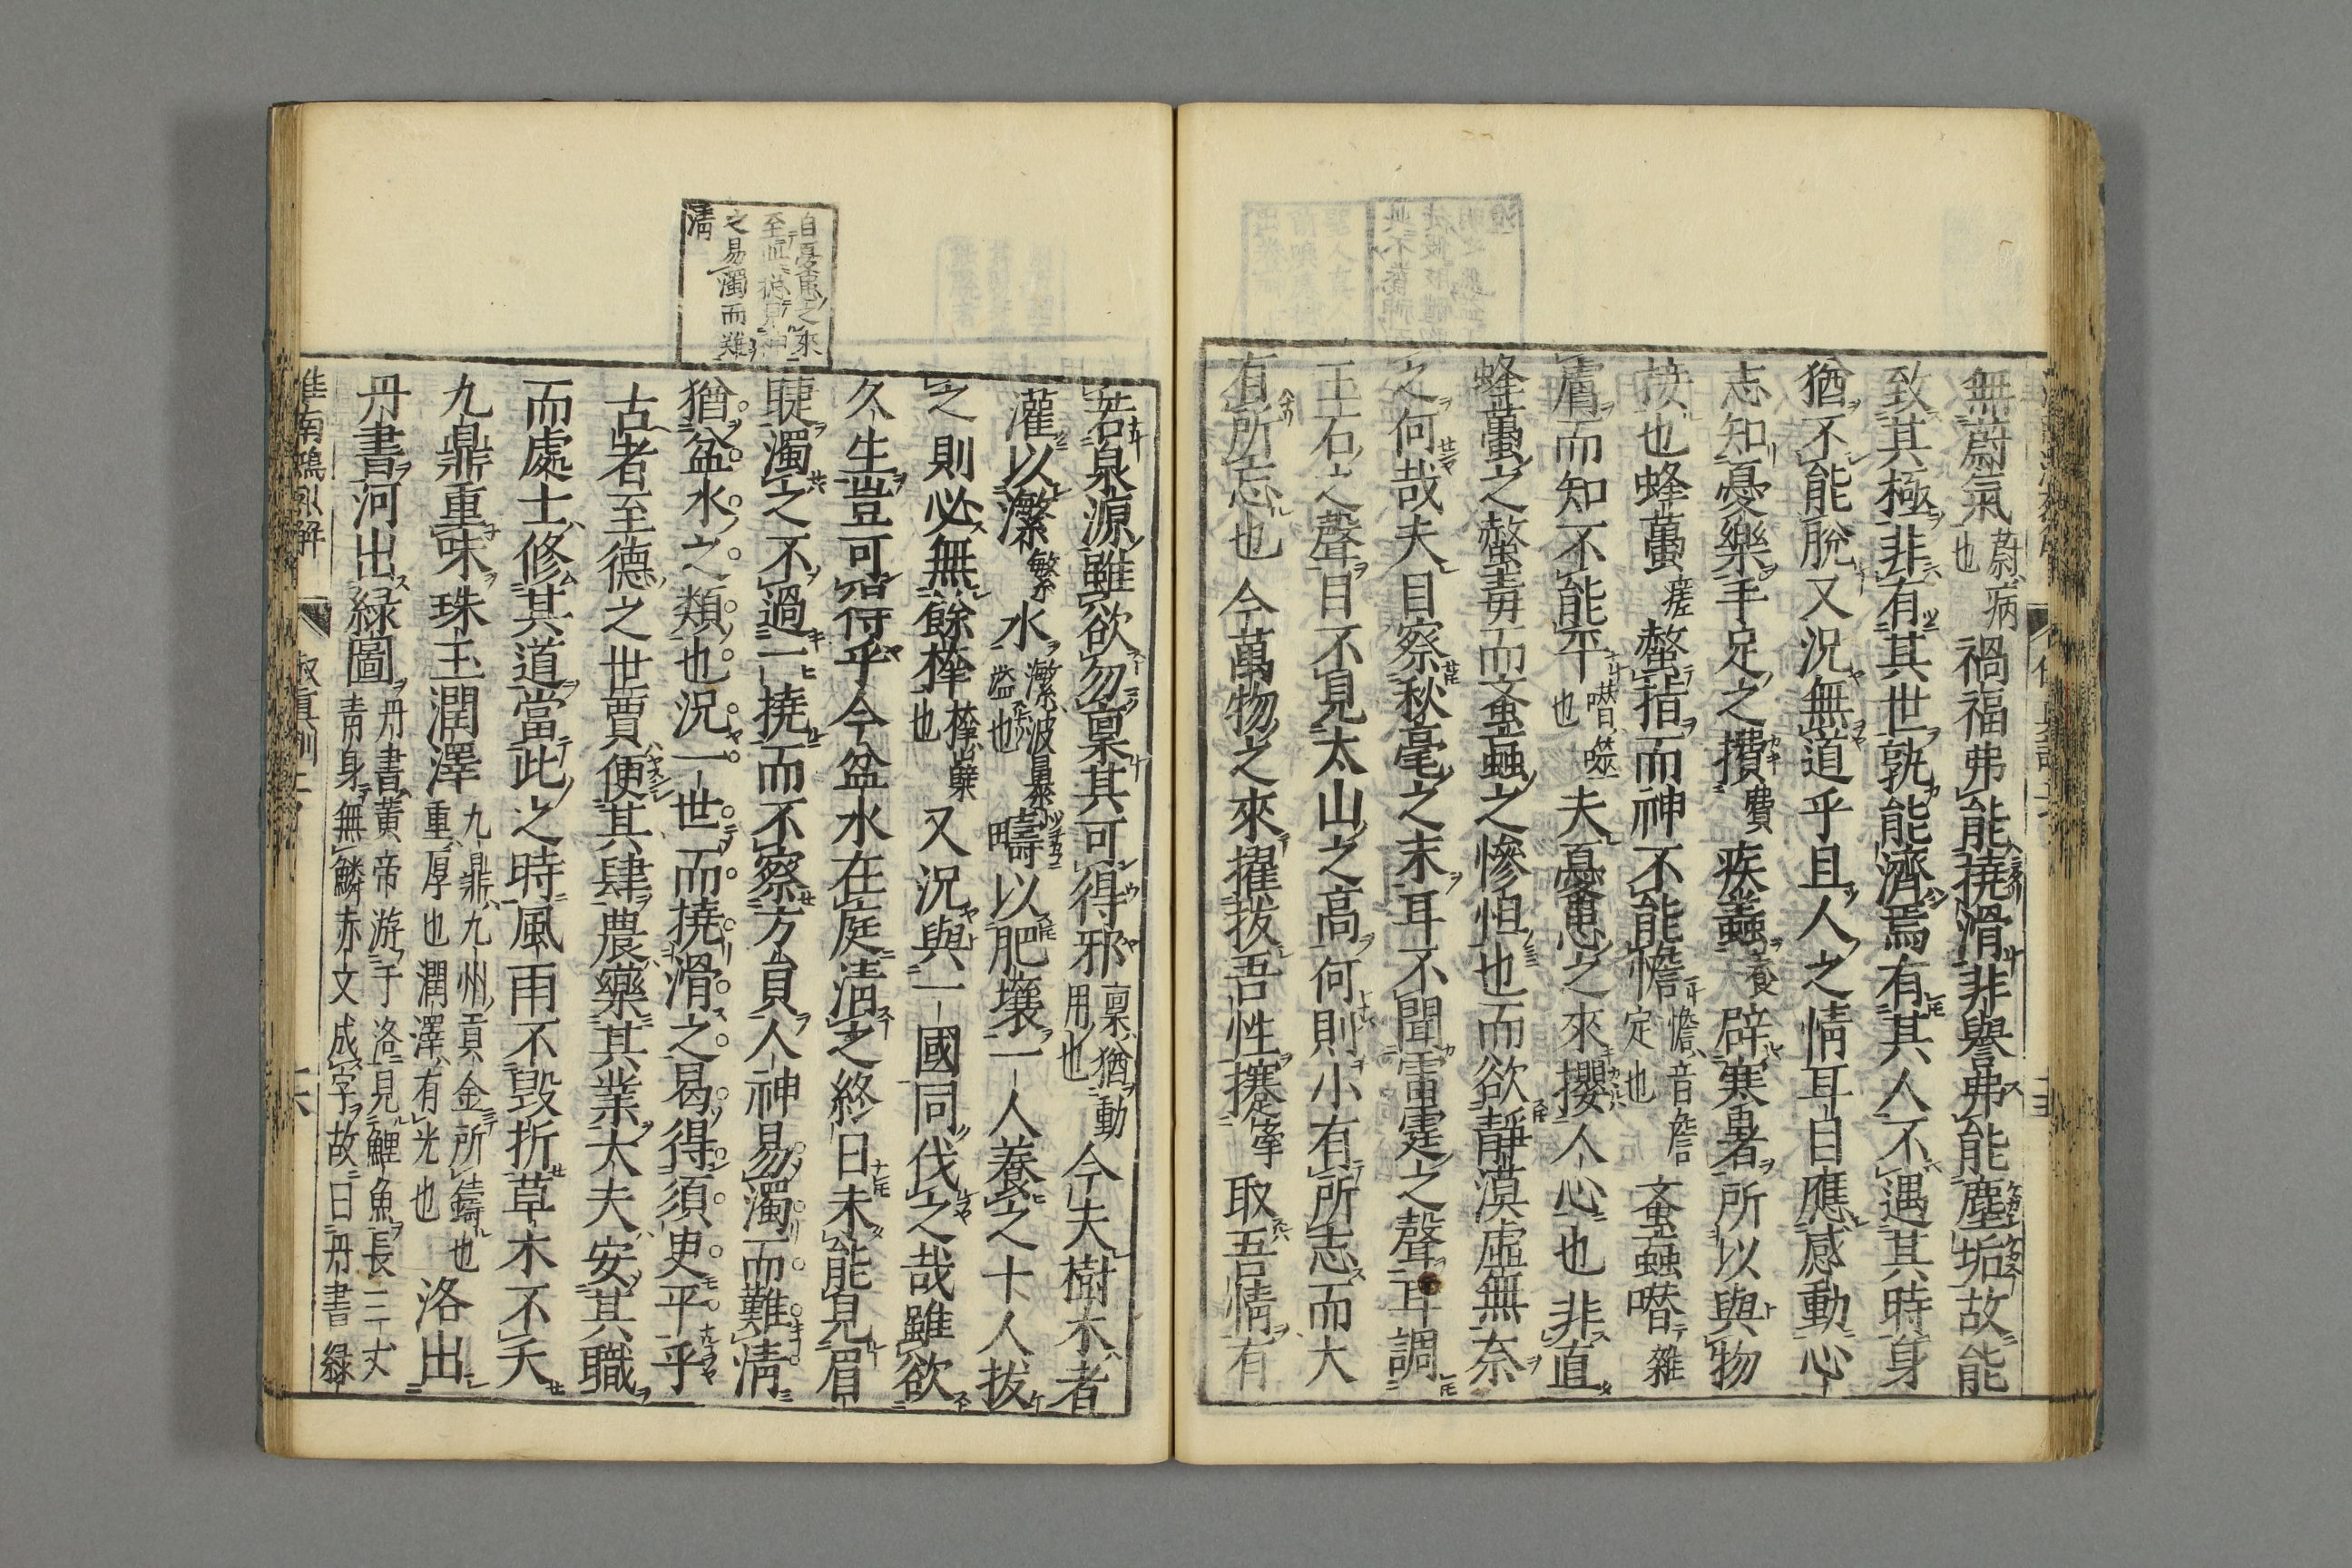 無蔚氣蔚病也禍福弗能撓滑非譽弗能塵垢故能
致其極非有其世孰能濟焉有其人不遇其時身
猶不能脫又況無道乎且人之情耳目應感動心
志知憂樂手足之攢費疾蟲養辟寒暑者所以與物
接也蜂蠆瘥螫指而神不能憺憺音詹定也蚉蝱噆雜
膚而知不能平噆噬也夫憂患之來攖人心也非直
蜂蠆之螫毒而蚉蝱之慘怛也而欲靜漠虛無奈
之何哉夫目察秋毫之末耳不聞雷霆之聲耳調
玉石之聲目不見太山之高何則小有所志而大
有所忘也今萬物之來擢拔吾性攓搴取吾情有
自憂患之來
至此摠見神
之易濁而難
清
若泉源雖欲勿稟其可得邪稟猶動用也今夫樹木者
灌以瀿繁水瀿波暴溢也疇以肥壤一人養之十人拔
之則必無餘㭕㭕蘖也又況與一國同伐之哉雖欲
久生豈可得乎今盆水在庭清之終日未能見眉
睫濁之不過一撓而不察方員人神易濁而難清
猶盆水之類也況一世而撓滑之曷得須臾平乎
古者至德之世賈便其肆農樂其業大夫安其職
而處士修其道當此之時風雨不毀折草木不夭
九鼎重味珠玉潤澤九鼎九州貢金所鑄也重厚也潤澤有光也洛出
丹書河出綠圖丹書黃帝游于洛見鯉魚長三丈青身無鱗赤文成字故曰丹書綠
淮南鴻烈解 俶真訓 六